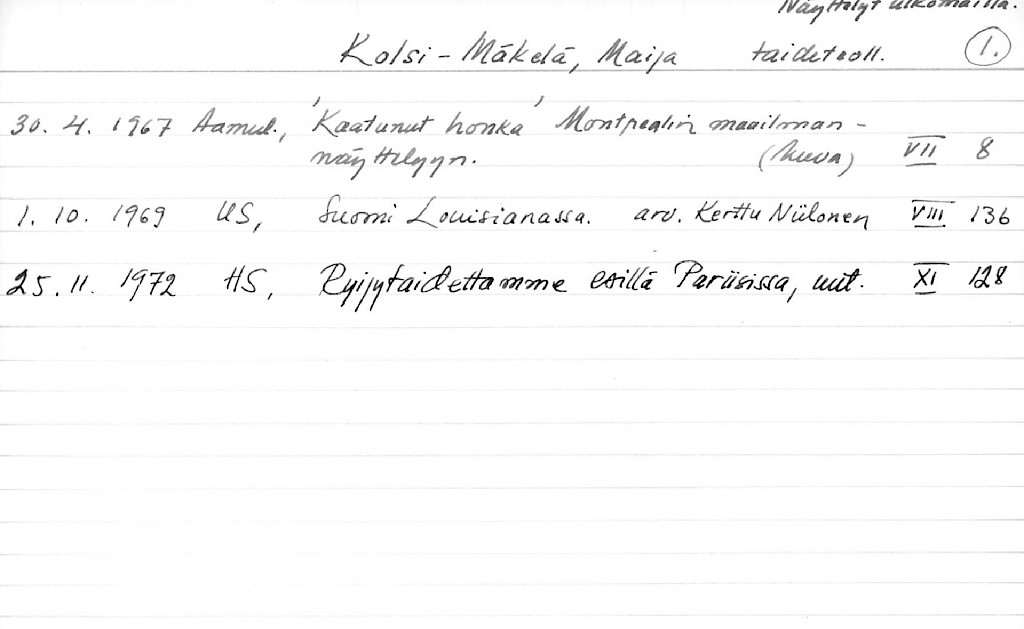 Näyttelyt ulkomailla.
Kolsi-Mäkelä, Maija taideteoll. 1.
30. 4. 1967 Aamul., 'Kaatunut honka' Montrealin maailman-
näyttelyyn. (kuva) VII 8
1. 10. 1969 US, Suomi Louisianassa. arv. Kerttu Niilonen VIII 136
25. 11. 1972 HS, Ryijytaidettamme esillä Pariisissa, uut. XI 128